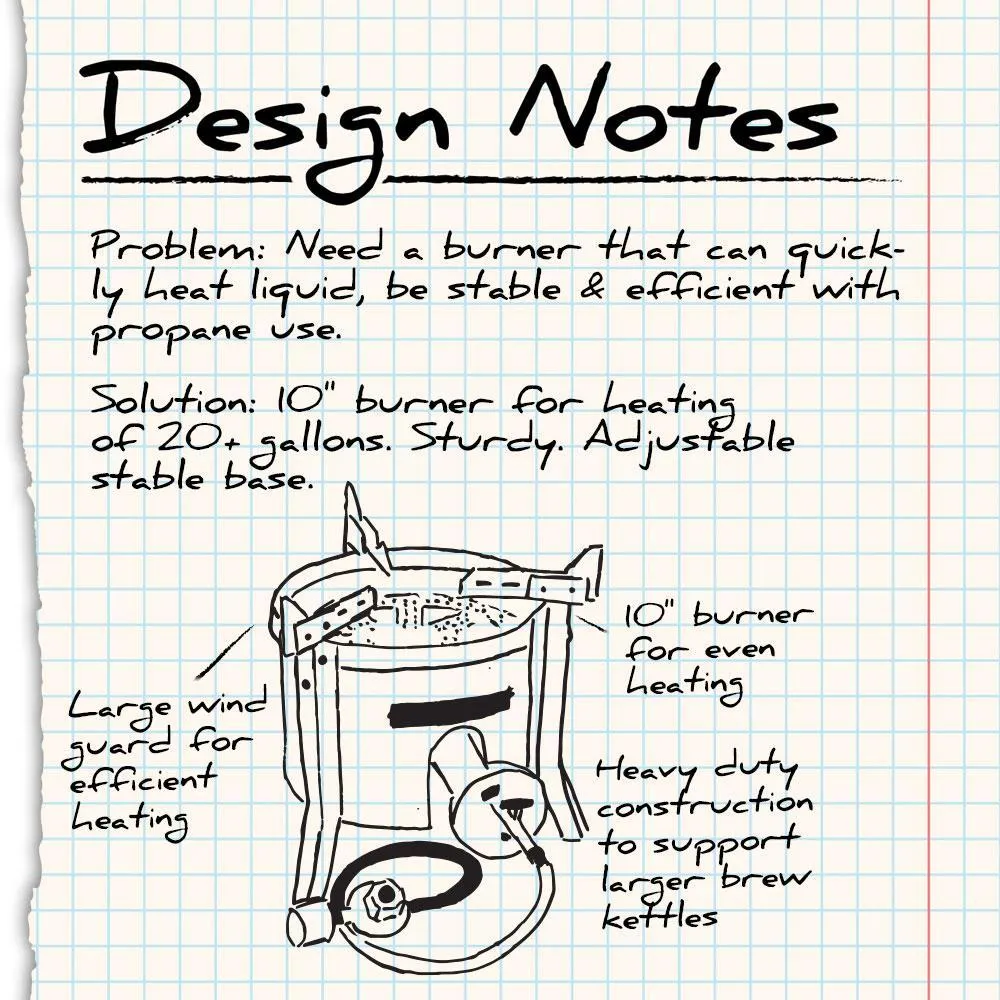 Design Notes
Problem: Need a burner that can quick-
ly heat liquid, be stable & efficient with
propane use.
Solution: 10" burner for heating
of 20+ gallons. Sturdy. Adjustable
stable base.
10" burner
for even
heating
Large wind
guard for
efficient
heating
Heavy duty
construction
to support
larger brew
kettles